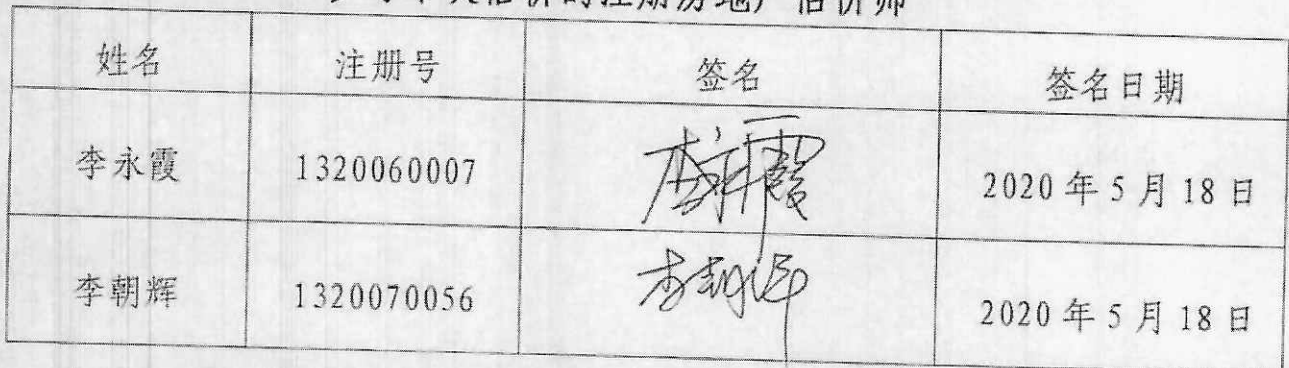 估价的注册房地产估价师
姓名 注册号 签名 签名日期
李永霞 1320060007 李永霞 2020年5月18日
李朝辉 1320070056 李朝辉 2020年5月18日